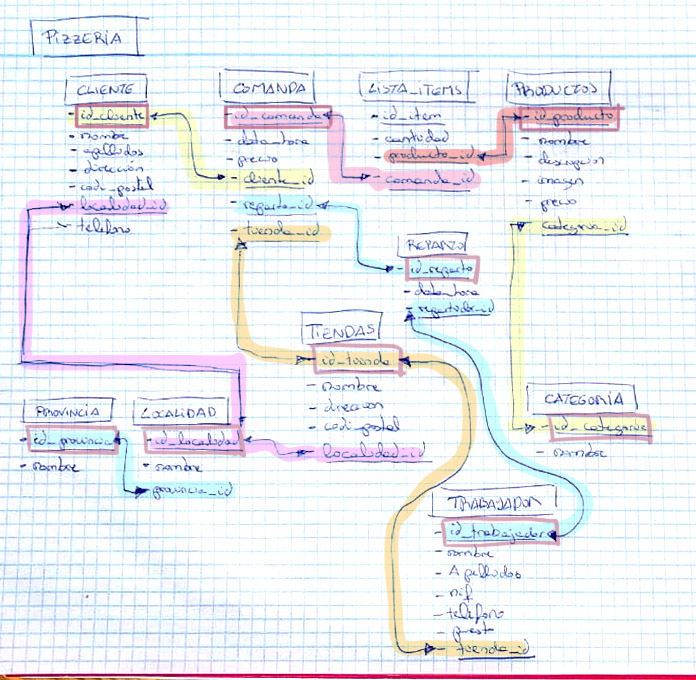 PIZZERIA
CLIENTE
- id_cliente
- nombre
- apellidos
- dirección
- codi_postal
- localidad_id
- telefono
COMANDA
- id_comanda
- data_hora
- precio
- cliente_id
- reparto_id
- tienda_id
LISTA_ITEMS
- id_item
- cantidad
- producto_id
- comanda_id
PRODUCTOS
- id_producto
- nombre
- descripcion
- imagen
- precio
- categoria_id
REPARTO
- id_reparto
- data_hora
- repartidor_id
TIENDAS
- id_tienda
- nombre
- direccion
- codi_postal
- localidad_id
PROVINCIA
- id_provincia
- nombre
LOCALIDAD
- id_localidad
- nombre
- provincia_id
CATEGORIA
- id_categoria
- nombre
TRABAJADOR
- id_trabajador
- nombre
- Apellidos
- nif
- telefono
- tienda_id